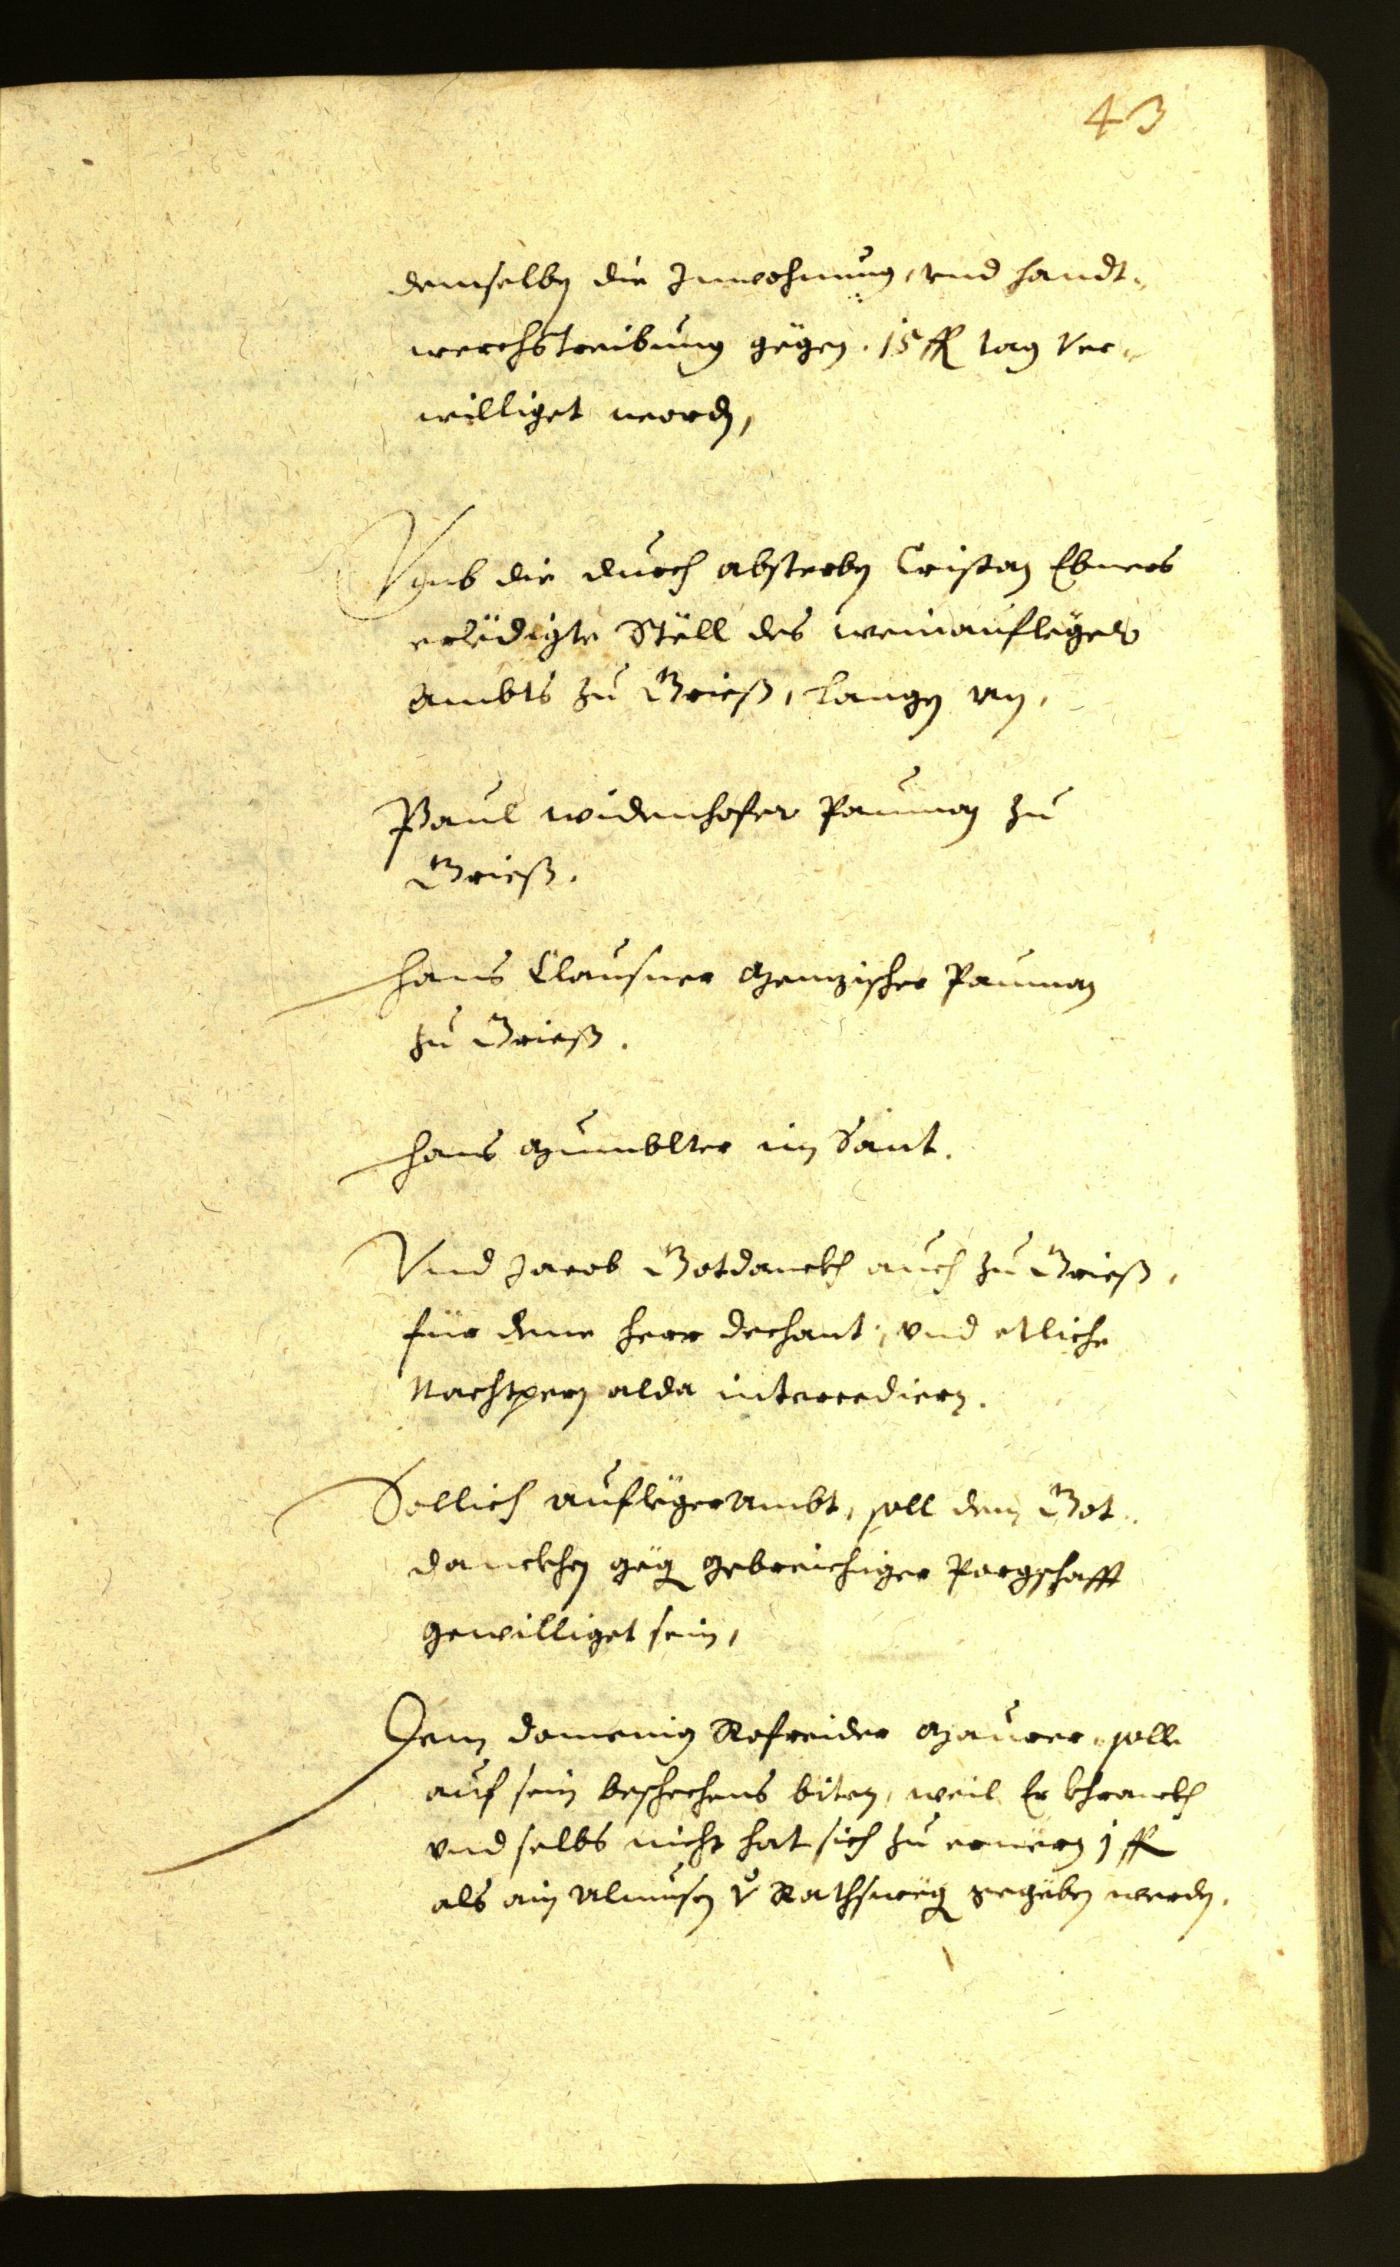 43
demselben die Inwohnung, vnd handt-
werchstreibung gegen. 15 fl tag ver-
williget worden,
Vmb die durch absterben Cristan Ebners
erledigte Stöll des weinauflegers
Ambts zu Griess, langen an,
Paul widenhofer Pauman zu
Griess.
Hans Clausner Menzischer Pauman
zu Griess.
Hans Mumblter im Sant.
Vnd Jacob Gotdanckh auch zu Griess,
für deme herr dechant, vnd etliche
Nachtpern alda intercediern.
Sollich auflegerambt, soll dem Got-
danckhen gegen gebreichiger Porgschafft
gewilliget sein,
Dem domenig Rofreider Maurer, solle
auf sein beschechens biten, weil Er khranckh
vnd selbs nicht hat sich zu ernern 1 fl
als ain Almusen v Rathswegen gegeben werden.